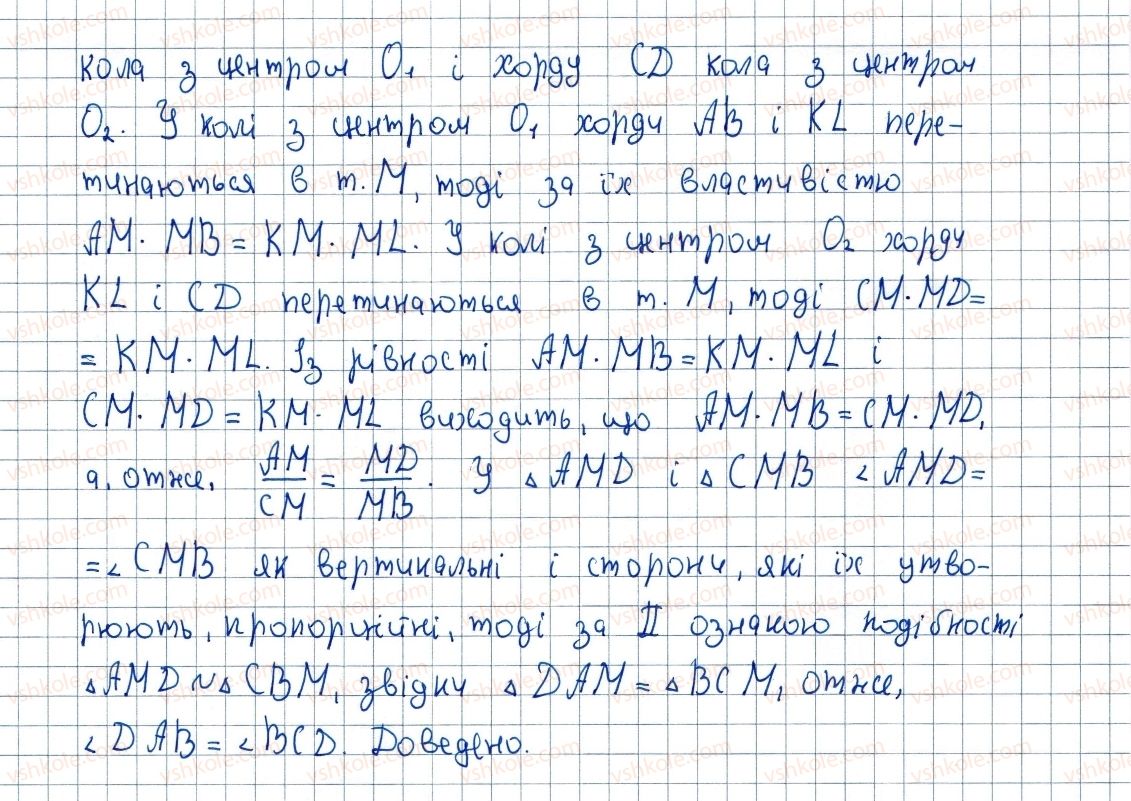 кола з центром O₁ і хорду CD кола з центром
O₂. У колі з центром O₁ хорди AB і KL пере-
тинаються в т. M, тоді за їх властивістю
AM · MB = KM · ML. У колі з центром O₂ хорди
KL і CD перетинаються в т. M, тоді CM · MD =
= KM · ML. Із рівності AM · MB = KM · ML і
CM · MD = KM · ML виходить, що AM · MB = CM · MD,
а, отже, AM/CM = MD/MB. У △AMD і △CMB ∠AMD =
= ∠CMB як вертикальні і сторони, які їх утво-
рюють, пропорційні, тоді за II ознакою подібності
△AMD ~ △CBM, звідки △DAM = △BCM, отже,
∠DAB = ∠BCD. Доведено.